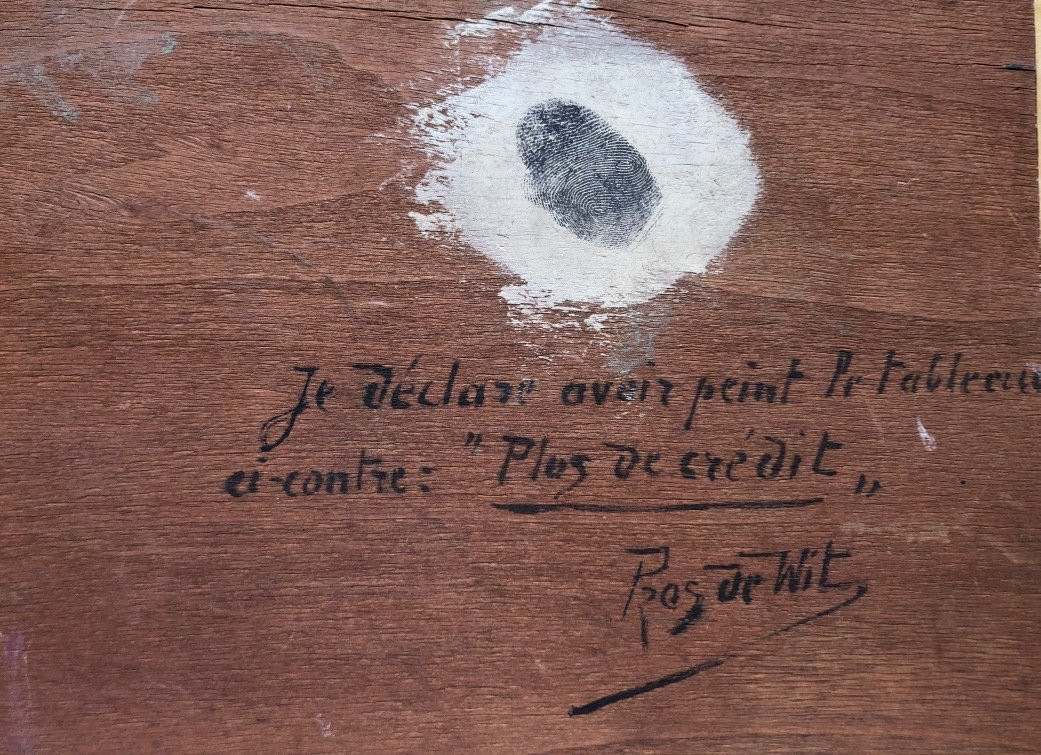 Je déclare avoir peint le tableau
ci-contre: "Plus de crédit„
Pros de Wit